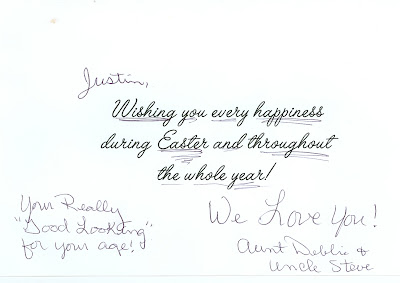 Justin,
Wishing you every happiness
during Easter and throughout
the whole year!
Your Really
"Good Looking"
for your age!
We Love You!
Aunt Debbie &
Uncle Steve